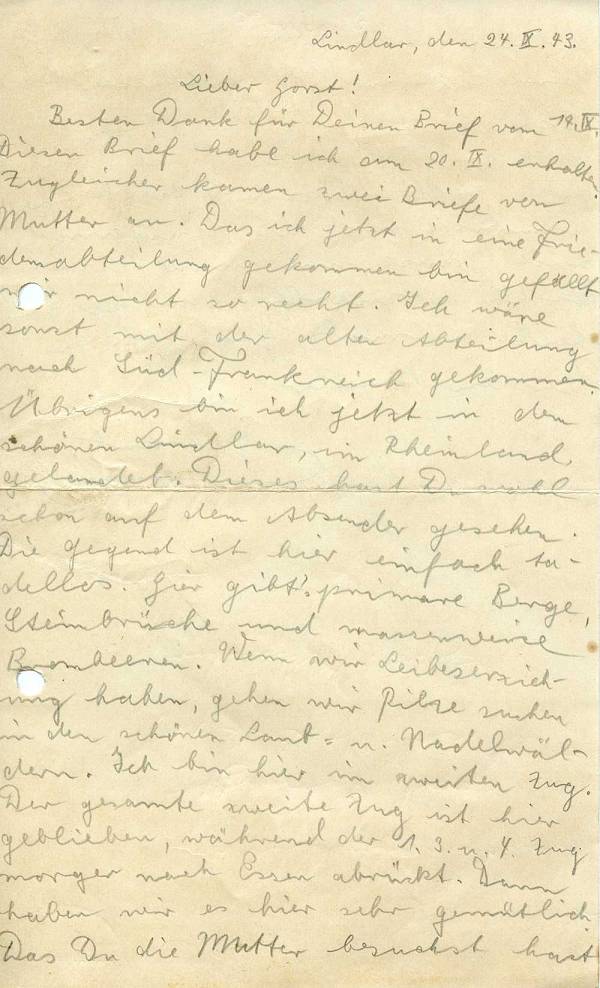 Lindlar, den 24. IX. 43.
Lieber Horst!
Besten Dank für Deinen Brief vom 17. IX.
Diesen Brief habe ich am 20. IX. erhalten.
Zugleicher kamen zwei Briefe von
Mutter an. Das ich jetzt in eine
abteilung gekommen bin gefällt
mir nicht so recht. Ich wäre
sonst mit der alten Abteilung
nach Süd-Frankreich gekommen.
Übrigens bin ich jetzt in dem
schönen Lindlar, im Rheinland,
gelandet. Dieses hast Du wohl
schon auf dem Absender gesehen.
Die Gegend ist hier einfach ta-
dellos. Hier gibt's primare Berge,
Steinbrüche und massenweise
Brombeeren. Wenn wir Leibeserzieh-
ung haben, gehen wir Pilze suchen
in den schönen Laub= u. Nadelwäl-
dern. Ich bin hier im zweiten Zug.
Der gesamte zweite Zug ist hier
geblieben, während der 1. 3. u. 4. Zug
morgen nach Essen abrückt. Dann
haben wir es hier sehr gemütlich.
Das Du die Mutter besuchst hast